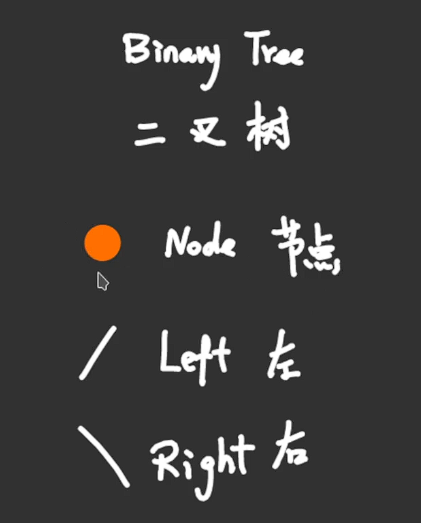 Binary Tree
二叉树
Node 节点
Left 左
Right 右